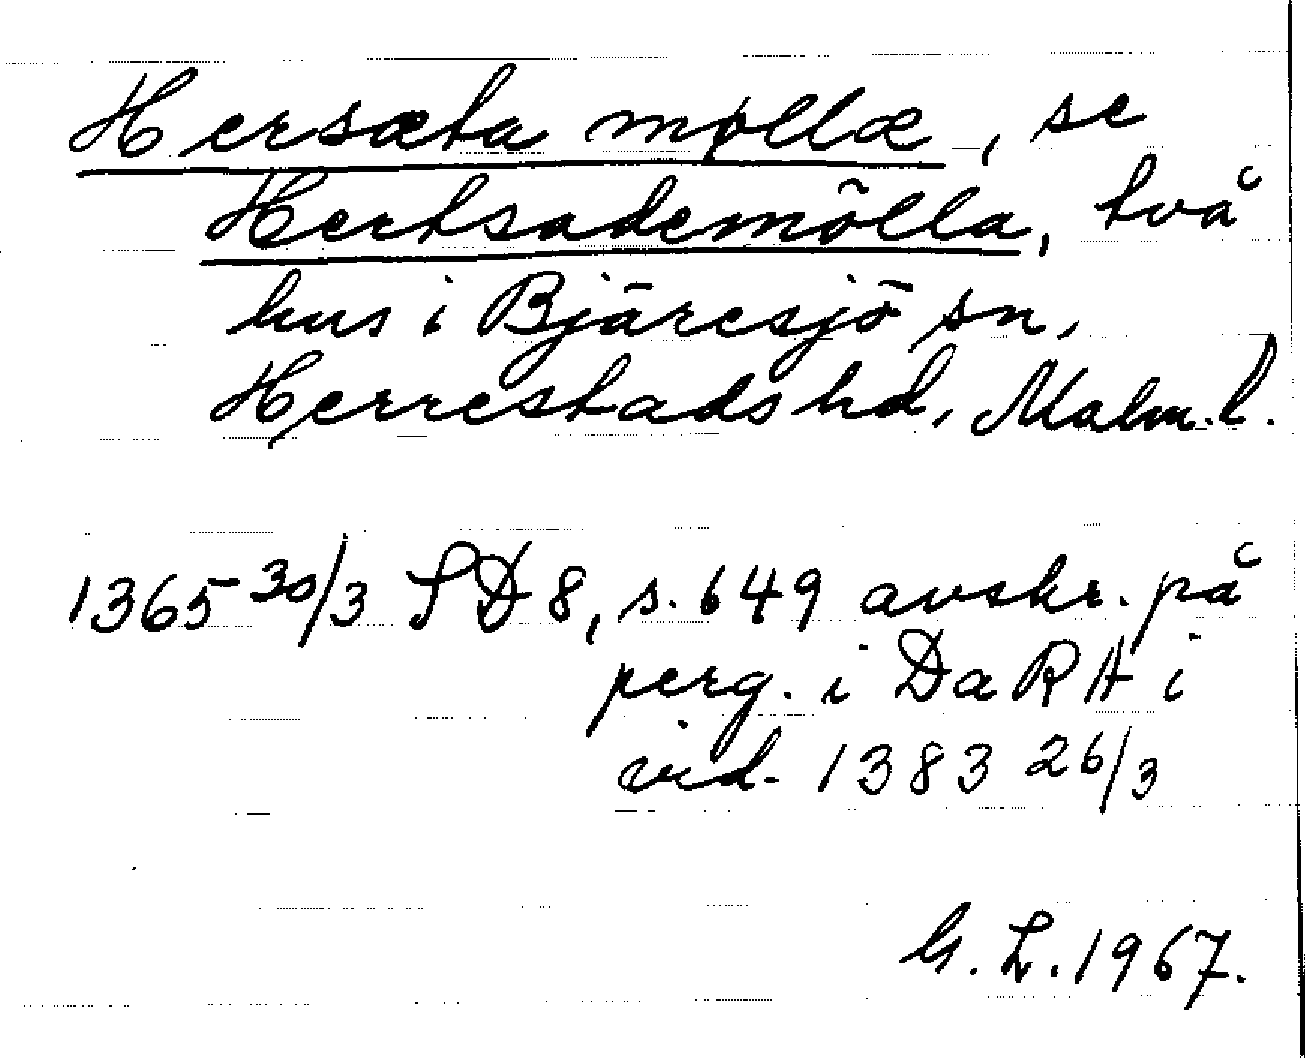 Hersæta møllæ, se
Hertsademölla, två
hus i Bjäresjö sn,
Herrestads hd, Malm. l.
1365 30/3 SD 8, s. 649 avskr. på
perg. i DaRA i
vid. 1383 26/3
G. L. 1967.